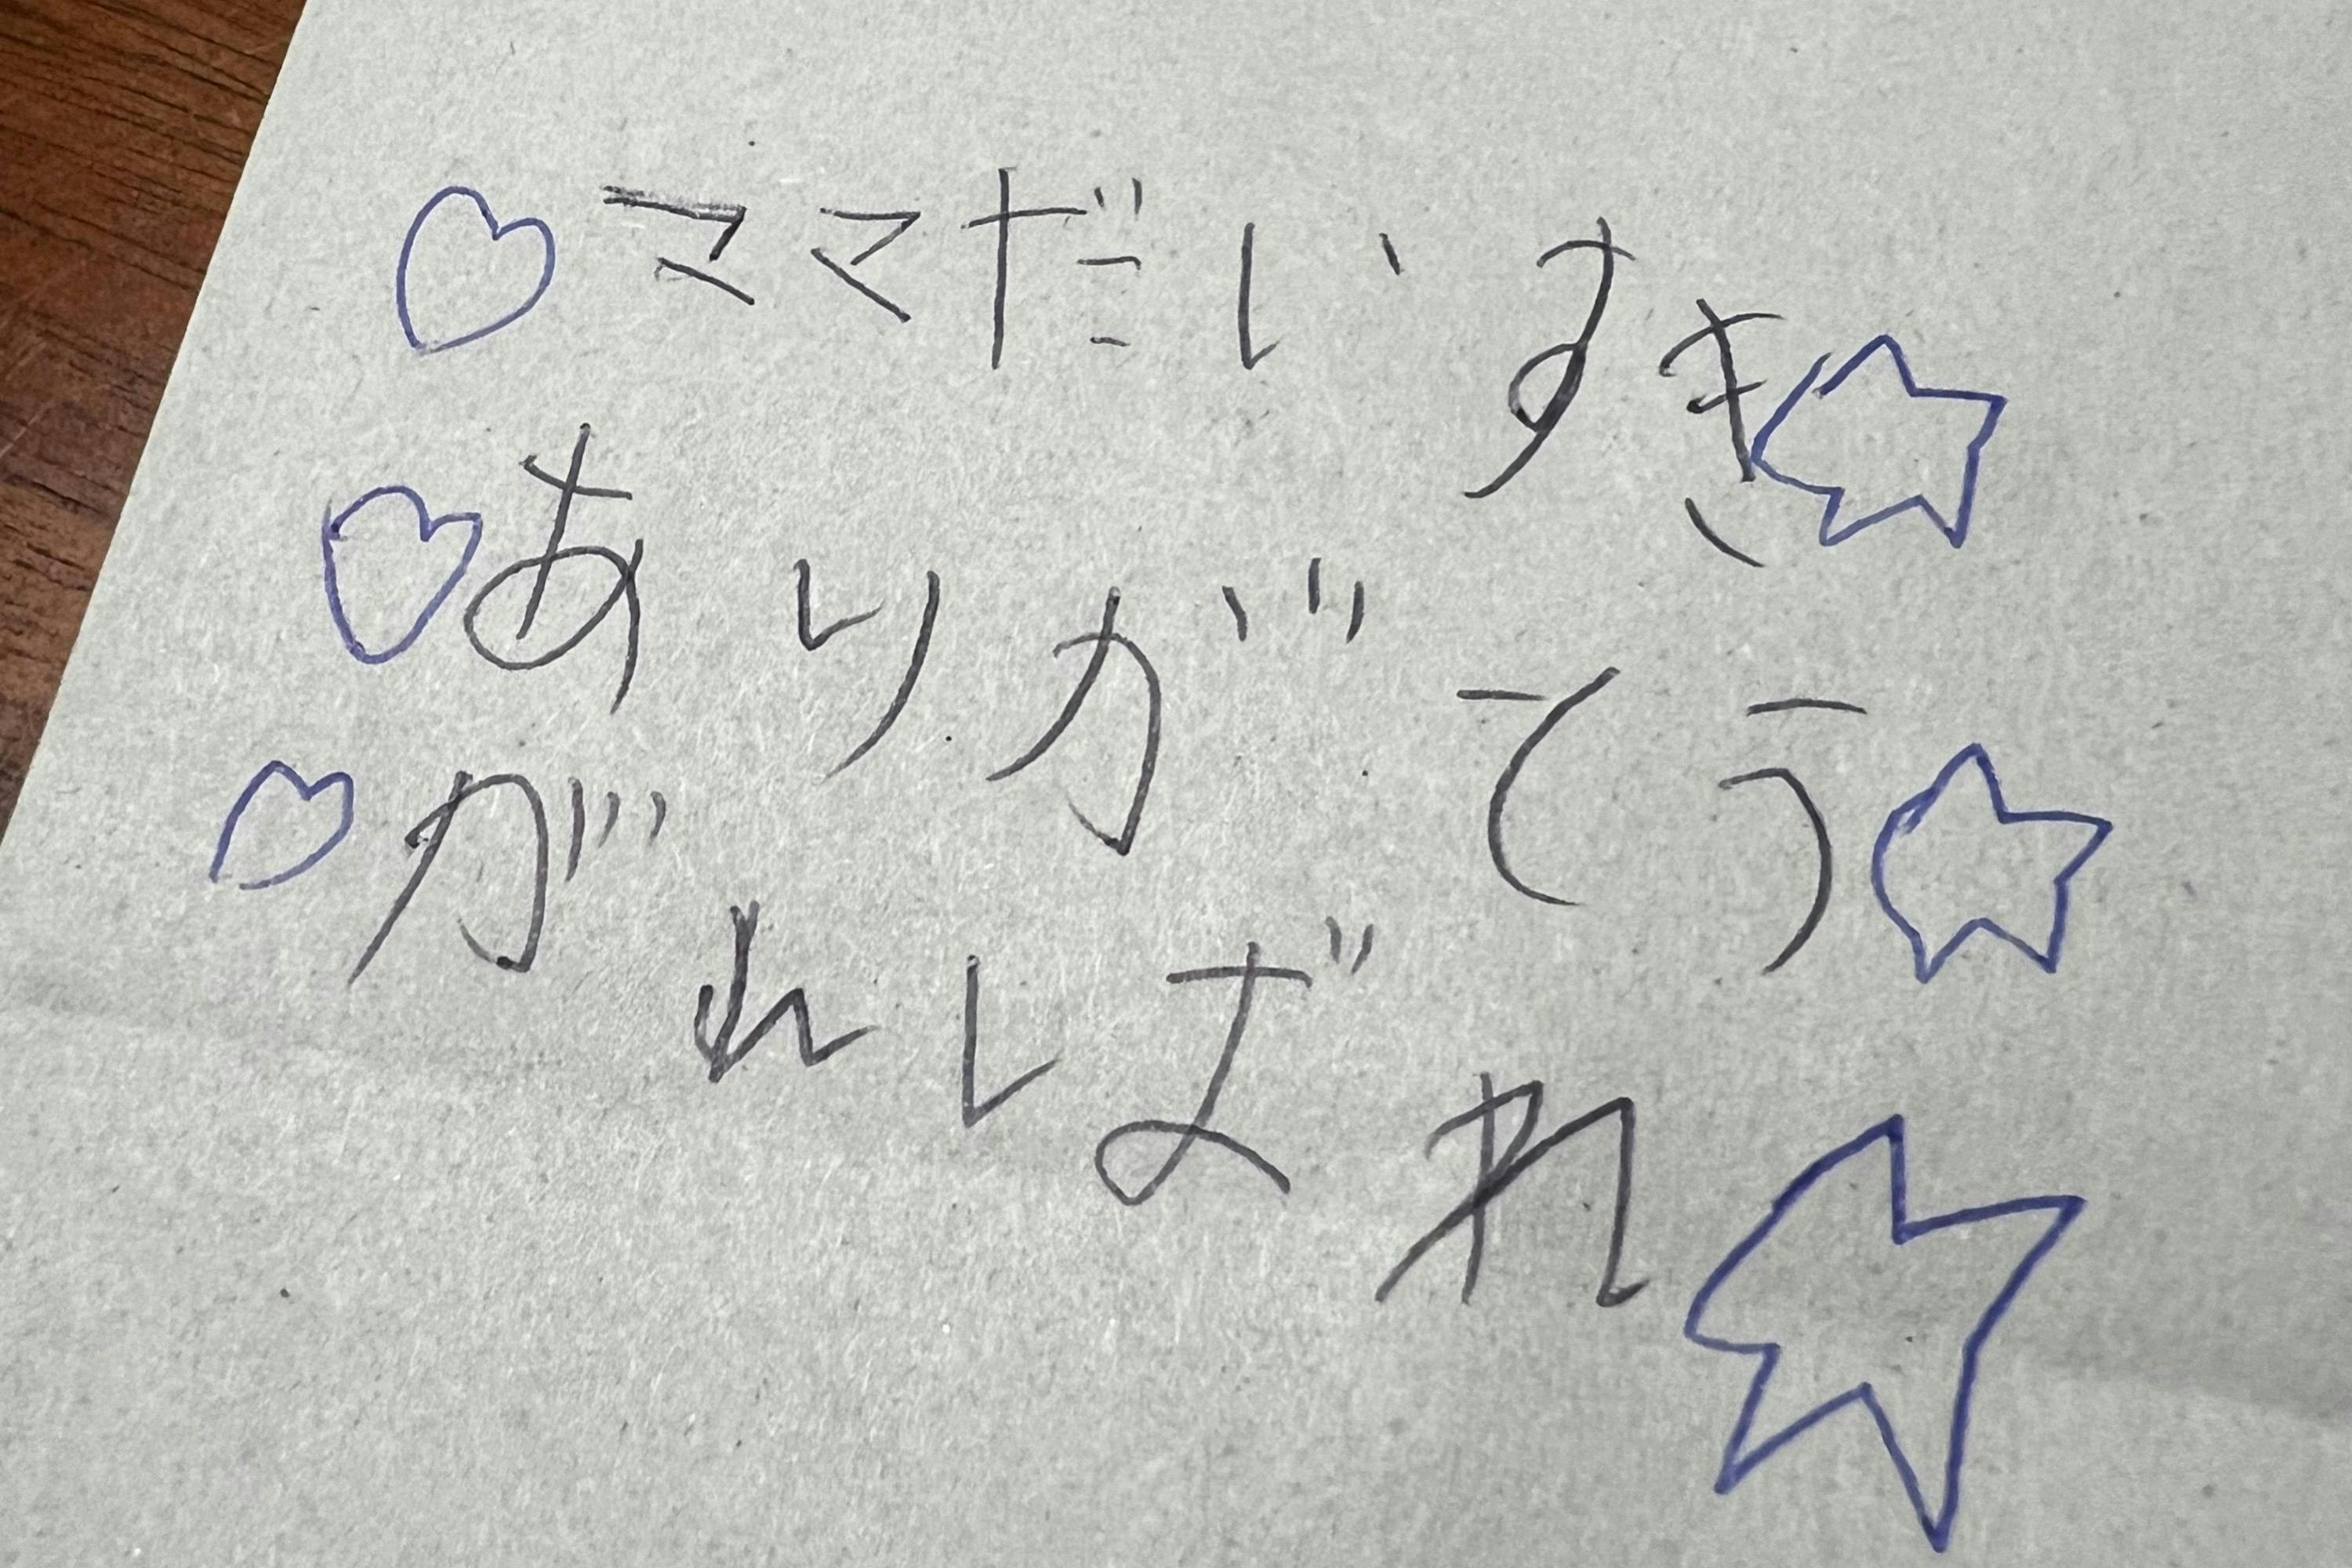 ♡ママだいすき☆
♡ありがてう☆
♡がんしばれ☆